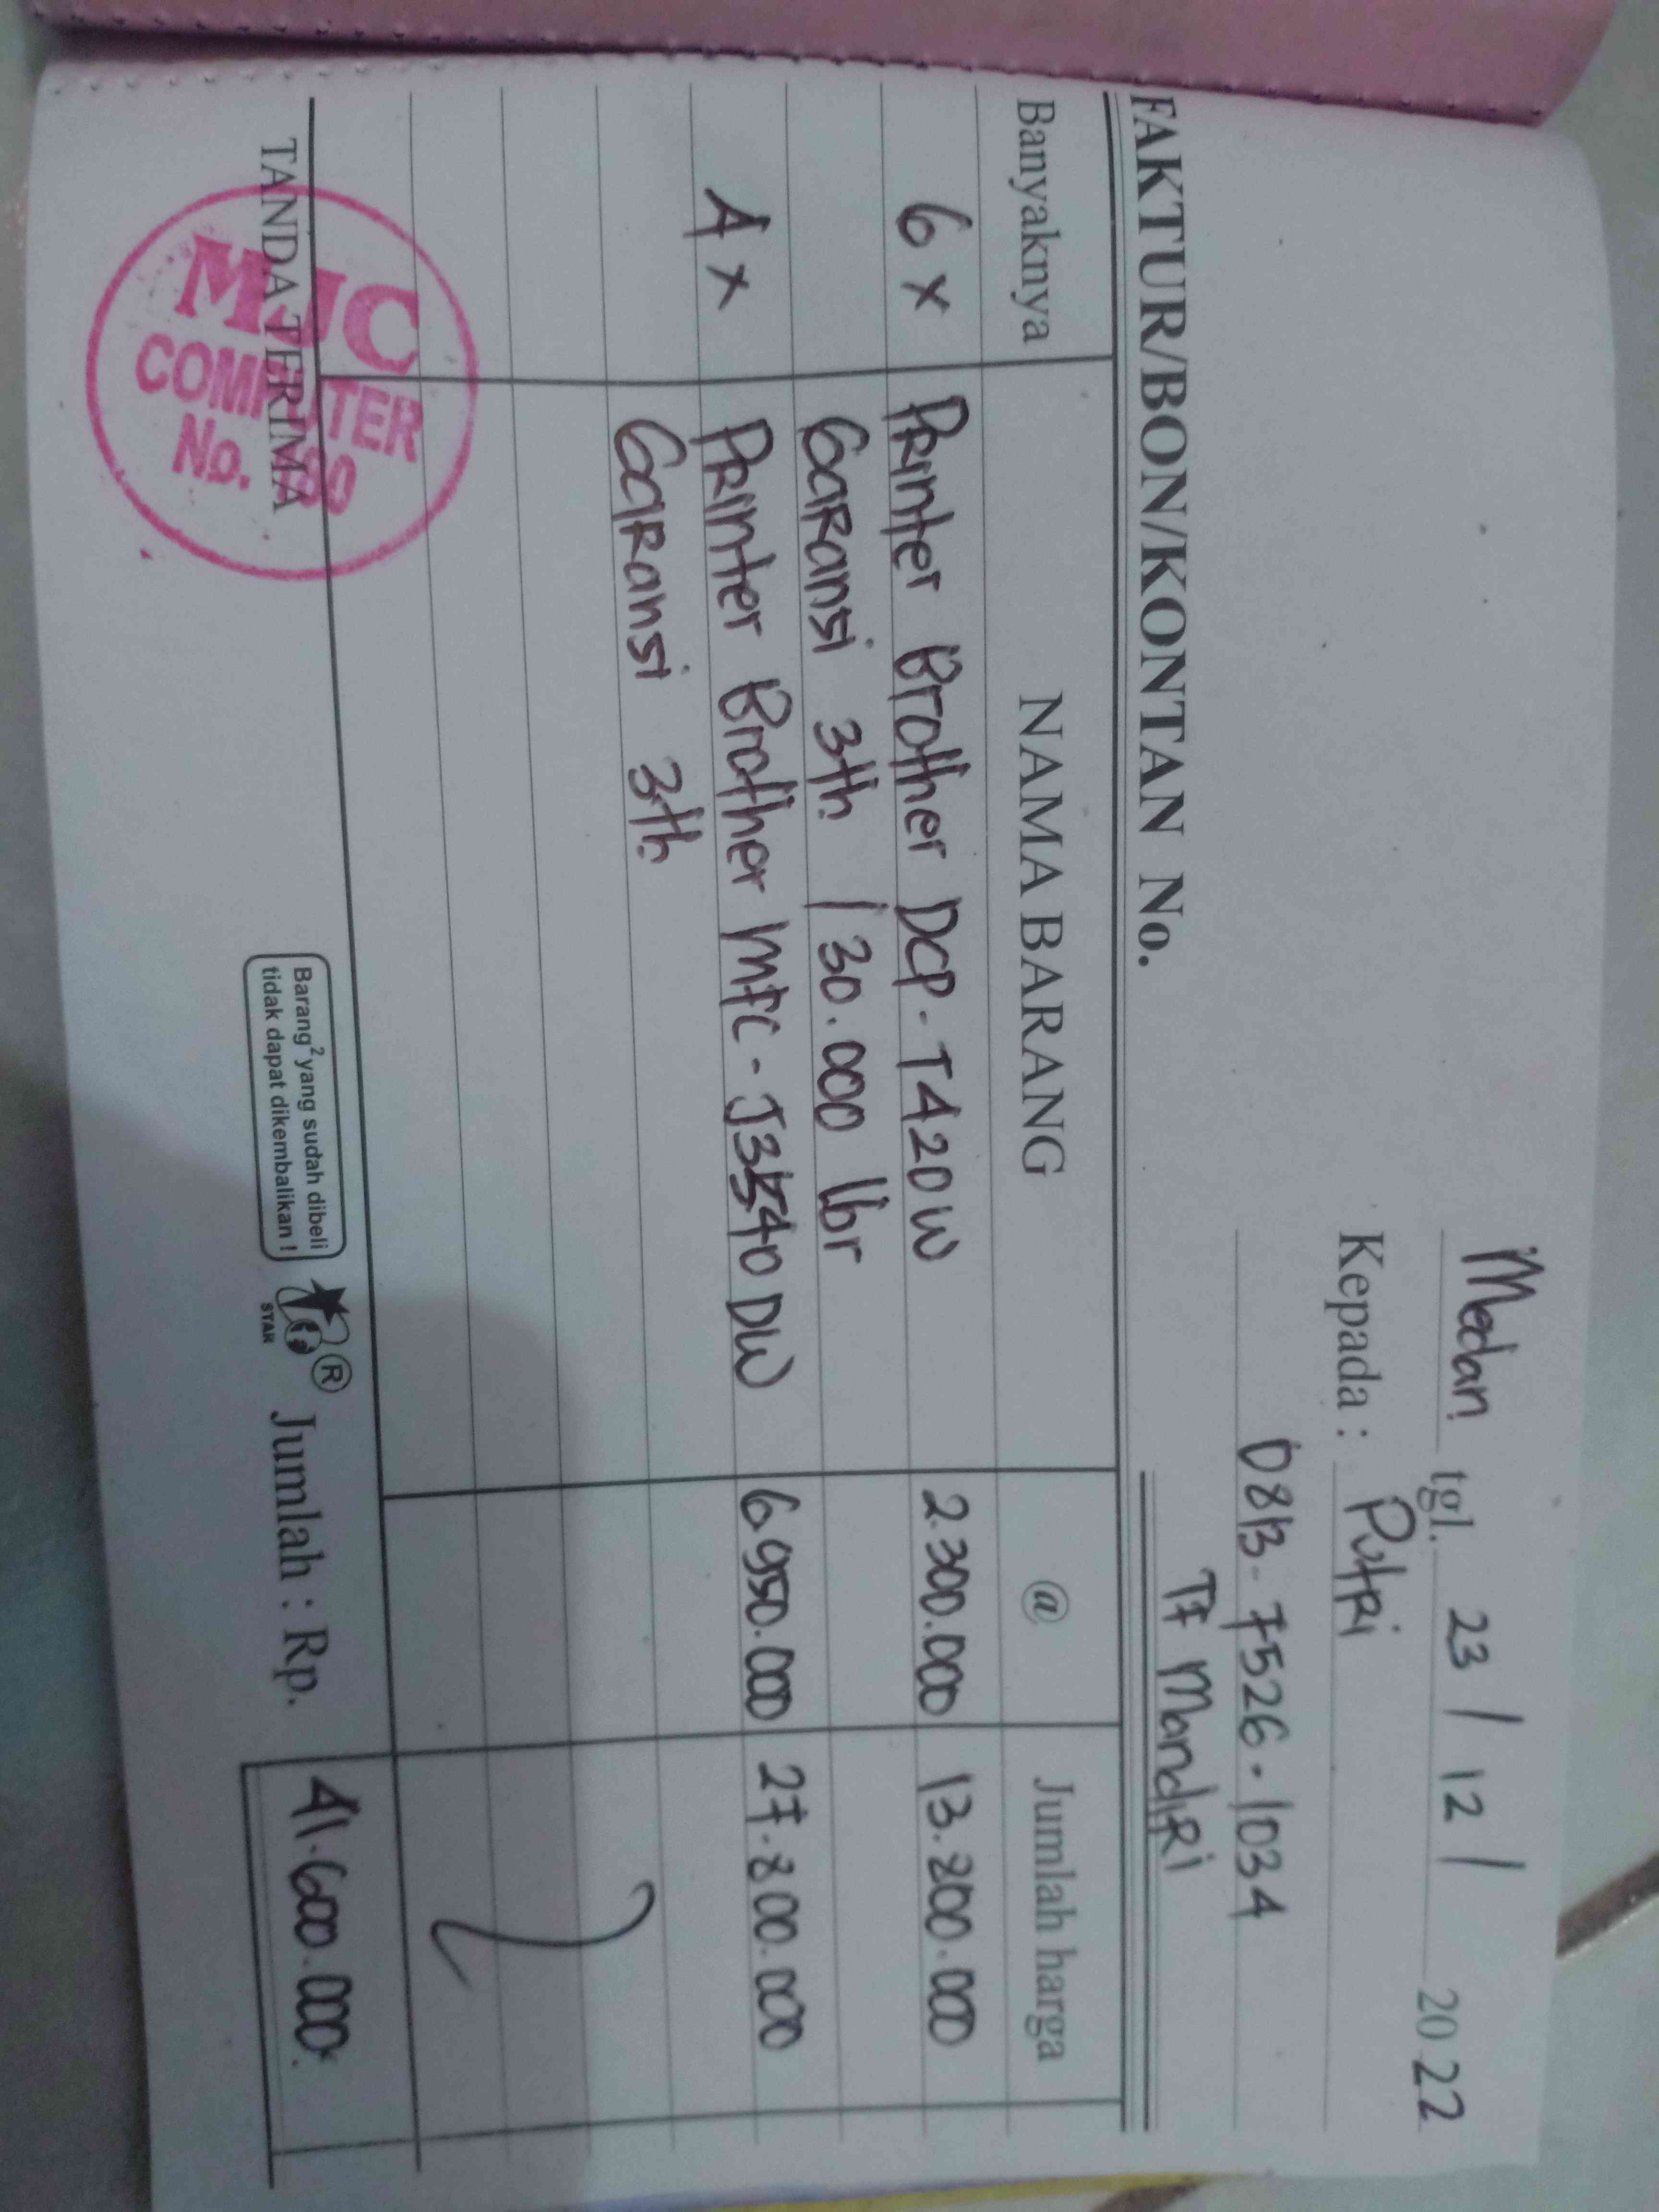 Medan tgl. 23 / 12 / 2022
Kepada : Putri
0813-7526-1034
TF Mandiri
FAKTUR/BON/KONTAN No.
Banyaknya NAMA BARANG @ Jumlah harga
6 x Printer Brother DCP-T420W 2.300.000 13.800.000
Garansi 3th / 30.000 lbr
4 x Printer Brother MFC-J3540DW 6.950.000 27.800.000
Garansi 3th
TANDA TERIMA
MJC
COMPUTER
No.
Barang2 yang sudah dibeli
tidak dapat dikembalikan !
STAR
®
Jumlah : Rp. 41.600.000